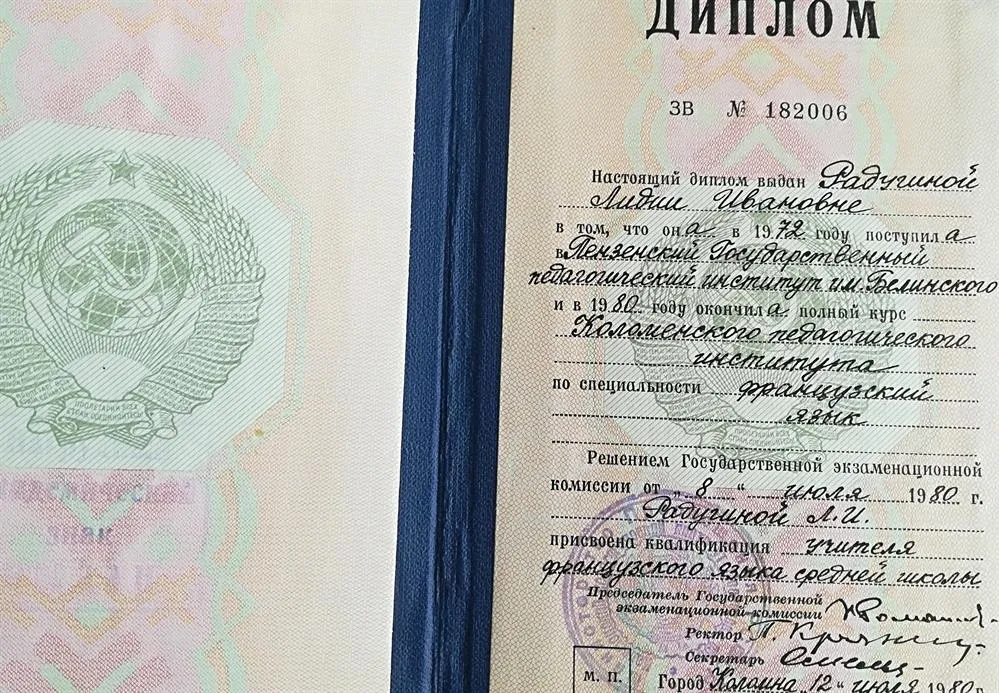 ПРОЛЕТАРИИ ВСЕХ
СТРАН, СОЕДИНЯЙТЕСЬ!
ДИПЛОМ
ЗВ № 182006
Настоящий диплом выдан Радугиной
Лидии Ивановне
в том, что она в 1972 году поступила
в Пензенский Государственный
педагогический институт им. Белинского
и в 1980 году окончила полный курс
Коломенского педагогического
института
по специальности французский
язык
Решением Государственной экзаменационной
комиссии от „8“ июля 1980 г.
Радугиной Л.И.
присвоена квалификация учителя
французского языка средней школы
Председатель Государственной
экзаменационной комиссии
Ректор
Секретарь
М. П.
Город Коломна, 12“ июля 1980 г.